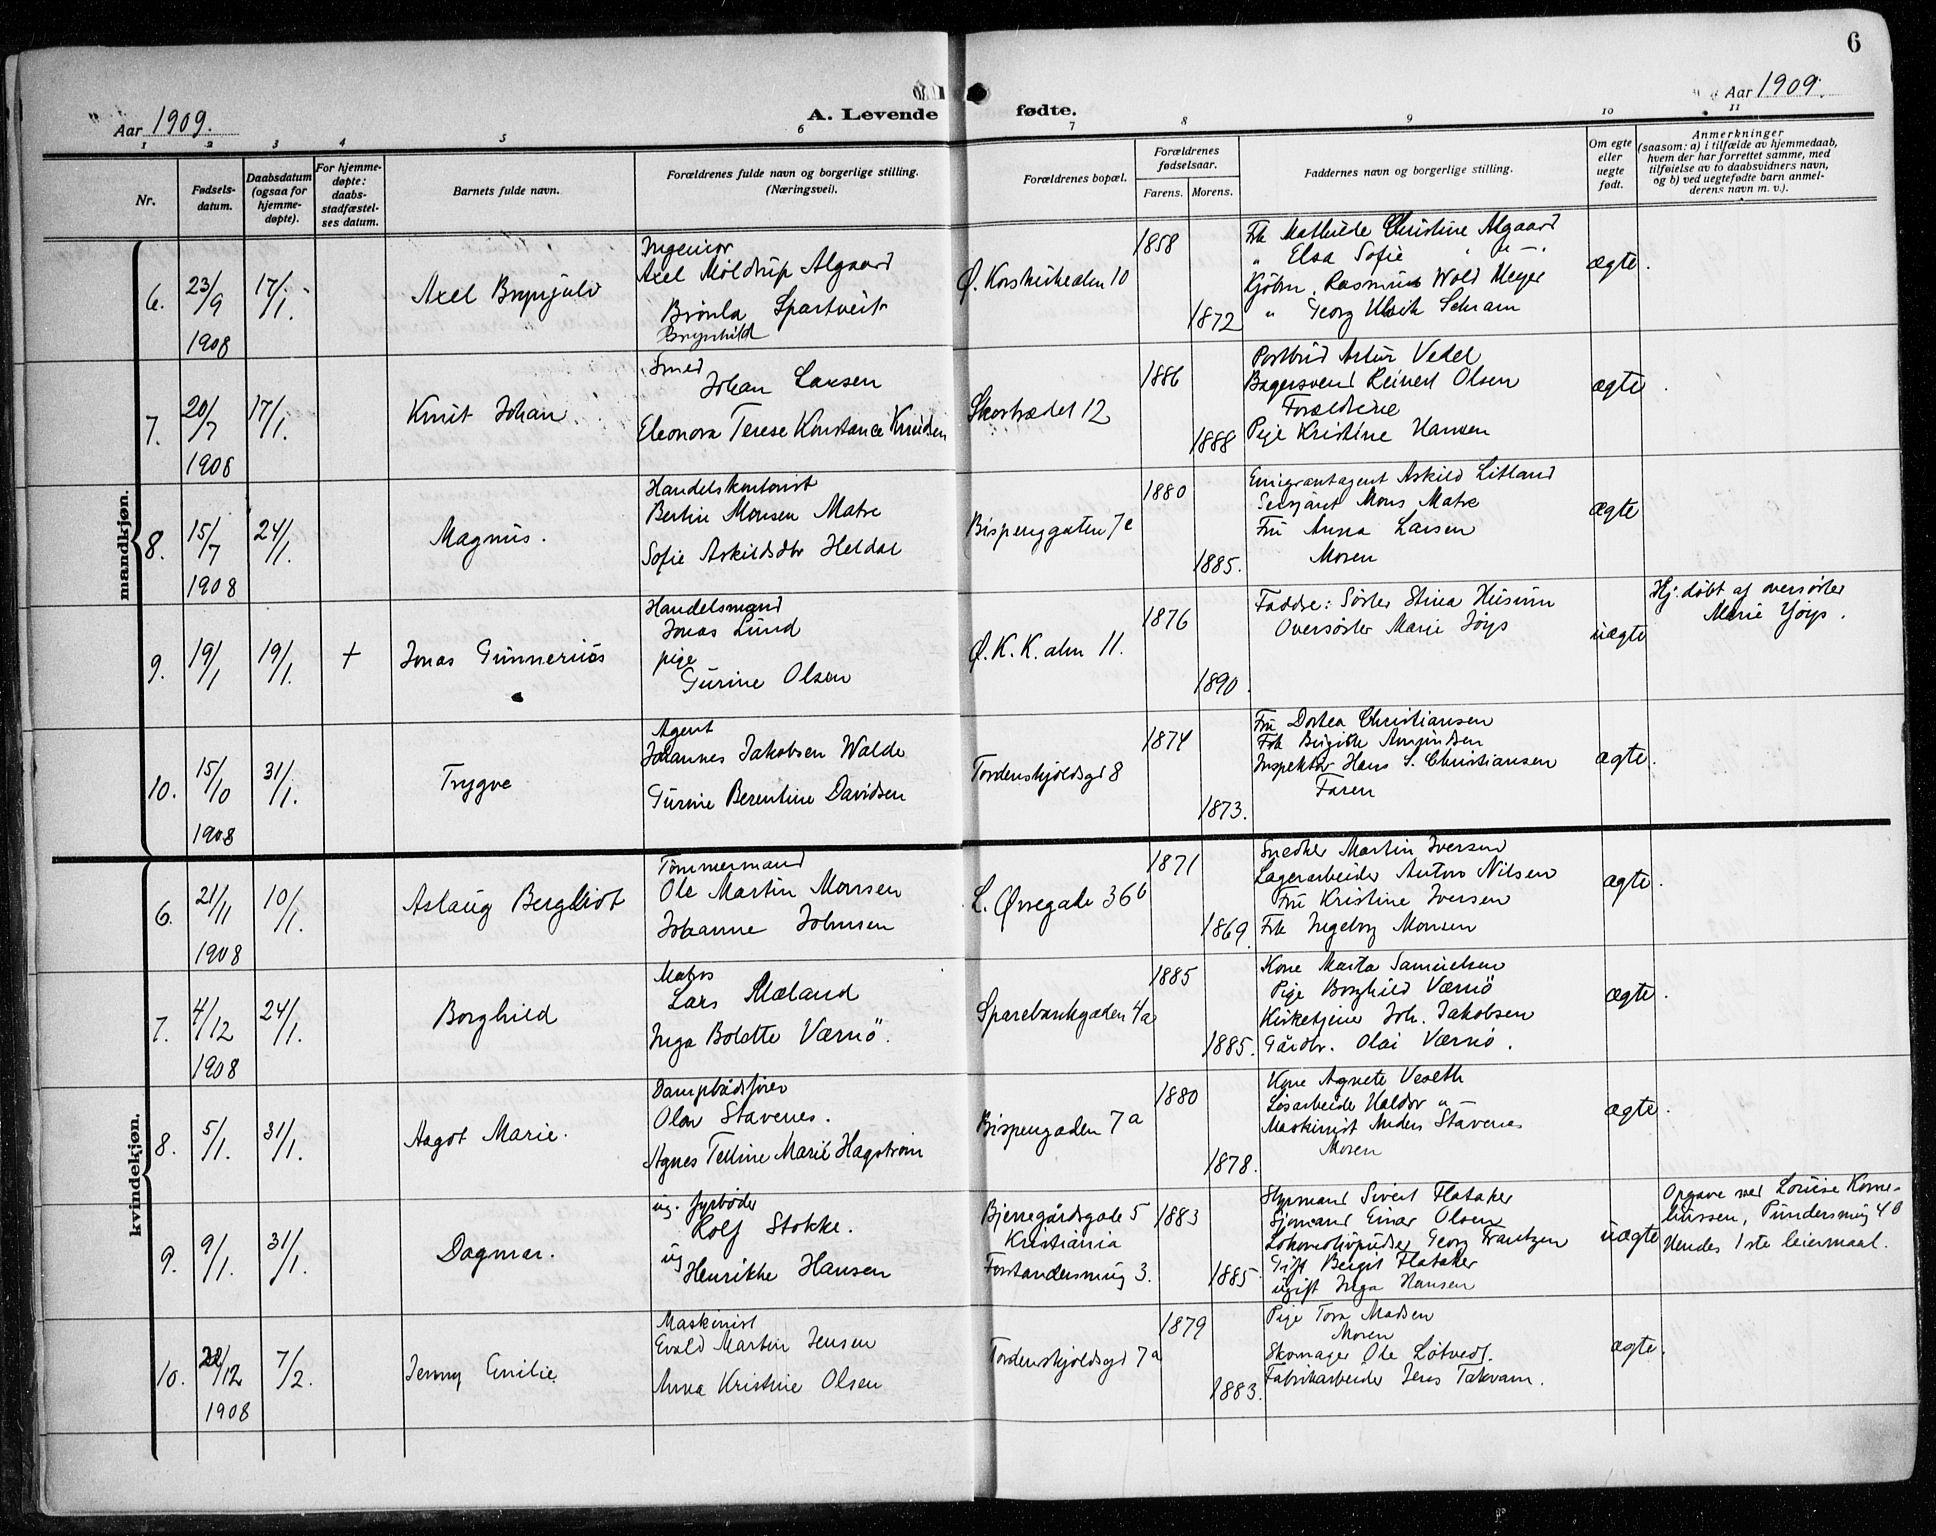 6
Aar 1909.
A. Levende fødte.
Aar 1909.
1 2 3 4 5 6 7 8 9 10 11
Nr.
Fødsels-
datum.
Daabsdatum
(ogsaa for
hjemme-
døpte).
For hjemme-
døpte:
daabs-
stadfæstel-
ses datum.
Barnets fulde navn.
Forældrenes fulde navn og borgerlige stilling.
(Næringsvei).
Forældrenes bopæl.
Forældrenes
fødselsaar.
Farens. Morens.
Faddernes navn og borgerlige stilling.
Om egte
eller
uegte
født.
Anmerkninger
(saasom: a) i tilfælde av hjemmedaab,
hvem der har forrettet samme, med
tilføielse av to daabsvidners navn,
og b) ved uegtefødte barn anmel-
derens navn m. v.).
mandkjøn.
6.
23/9
1908
17/1.
Axel Brynjulv
Ingeniør
Axel Moldrup Algaard
Brønla Spartveit
Brynhild
Ø. Korskirkealm 10
1858
1872
Frk Mathilde Christine Algaard
" Elsa Sofie " " -
Kjøbm. Rasmus Wold Meyer
" Georg Ulrik Schram
ægte.
7.
20/7
1908
17/1.
Knut Johan
Smed
Johan Larsen
Eleonora Terese Konstance Knudsen
Skostrædet 12
1886
1888
Postbud Artur Vedel
Bagersvend Reinert Olsen
Forældrene
Pige Kristine Hansen
ægte.
8.
15/7
1908
24/1.
Magnus.
Handelskontorist
Bertin Monsen Matre
Sofie Askildsdtr Heldal
Bispenggaten 7c
1880
1885.
Emigrantagent Askild Litland
Sersjant Mons Matre
Fru Anna Larsen
Moren
ægte
9.
19/1
19/1.
+
Jonas Gunnerius
Handelsmand
Jonas Lund
pige
Gurine Olsen
Ø. K. K. alm 11.
1876
1890.
Faddre: Søster Stina Husum
Oversøster Marie Joys
uægte
Hj. døbt af oversøster
Marie Joys.
10.
15/10
1908
31/1.
Trygve
Agent
Johannes Jakobsen Walde
Gurine Berentine Davidsen
Tordenskjoldsgd 8
1874
1873.
Fru Dortea Christiansen
Frk Birgitte Amundsen
Inspektør Hans S. Christiansen
Faren
ægte.
kvindekjøn.
6.
21/11
1908
10/1.
Aslaug Bergliot
Tømmermand
Ole Martin Monsen
Johanne Johnsen
L. Øvregade 36b
1871
1869.
Snedker Martin Iversen
Lagerarbeider Anton Nilsen
Fru Kristine Iversen
Frk Ingeborg Monsen
ægte.
7.
4/12
1908
24/1.
Borghild
Matros
Lars Mæland
Inga Bolette Værnö.
Sparebankgaden 4a
1885
1885.
Kone Marta Samuelsen
Pige Borghild Værnö
Kirketjener Joh. Jakobsen
Gårdbr. Olai Værnö.
ægte.
8.
5/1.
31/1.
Aagot Marie.
Dampbådsfører
Olav Stavenes.
Agnes Telline Marie Hagstrøm
Bispengaden 7a
1880
1878.
Kone Agnete Veseth
Løsarbeider Haldor "
Maskinist Anders Stavenes
Moren
ægte.
9.
9/1.
31/1.
Dagmar.
ug. fyrbøder
Rolf Stokke.
ug
Henrikke Hansen
Bjerregårdsgade 5
Kristiania
Forstandersmug 3.
1883
1885.
Styrmand Sivert Flataker
Sjømand Einar Olsen
Lokomotivpudser Georg Frantzen
Gift Bergit Flataker
ugift Inga Hansen
uægte
Opgave ved Louise Korne-
liussen, Pundersmug 4b
Hendes 1ste leiermaal.
10.
22/12
1908
7/2.
Jenny Emilie
Maskinist
Evald Martin Jensen
Anna Kristine Olsen
Tordenskjoldsgd 7a
1879
1883.
Pige Tora Madsen
Moren
Skomager Ole Løtvedt.
Fabrikarbeider Jens Takvam.
ægte.